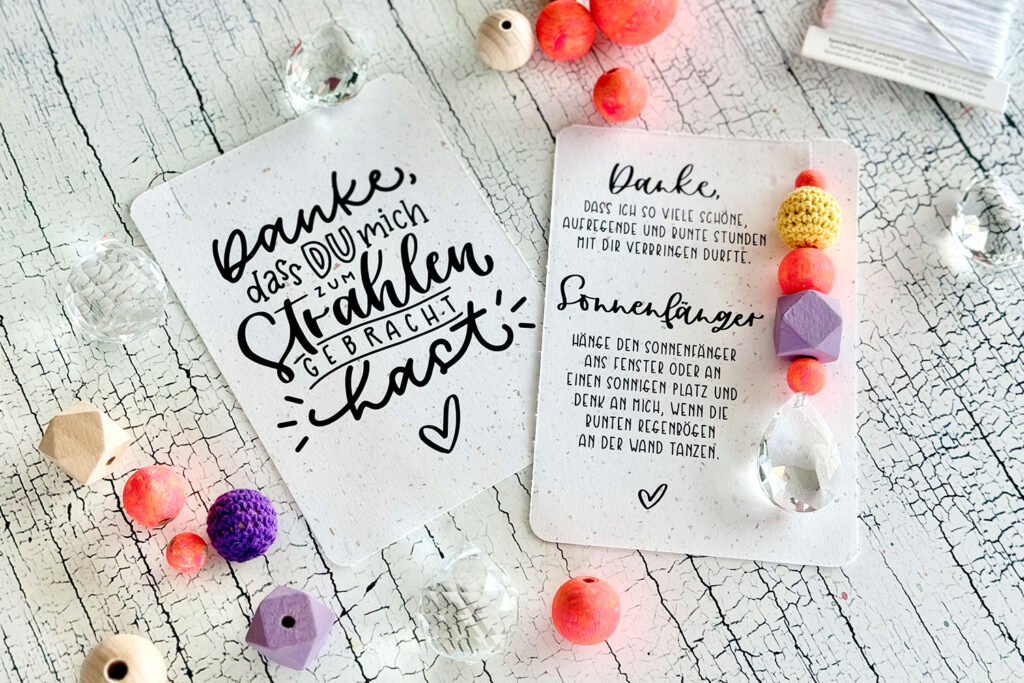 Danke,
dass DU mich
ZUM
Strahlen
GEBRACHT
hast
Danke,
DASS ICH SO VIELE SCHÖNE,
AUFREGENDE UND BUNTE STUNDEN
MIT DIR VERBRINGEN DURFTE.
Sonnenfänger
HÄNGE DEN SONNENFÄNGER
ANS FENSTER ODER AN
EINEN SONNIGEN PLATZ UND
DENK AN MICH, WENN DIE
BUNTEN REGENBÖGEN
AN DER WAND TANZEN.